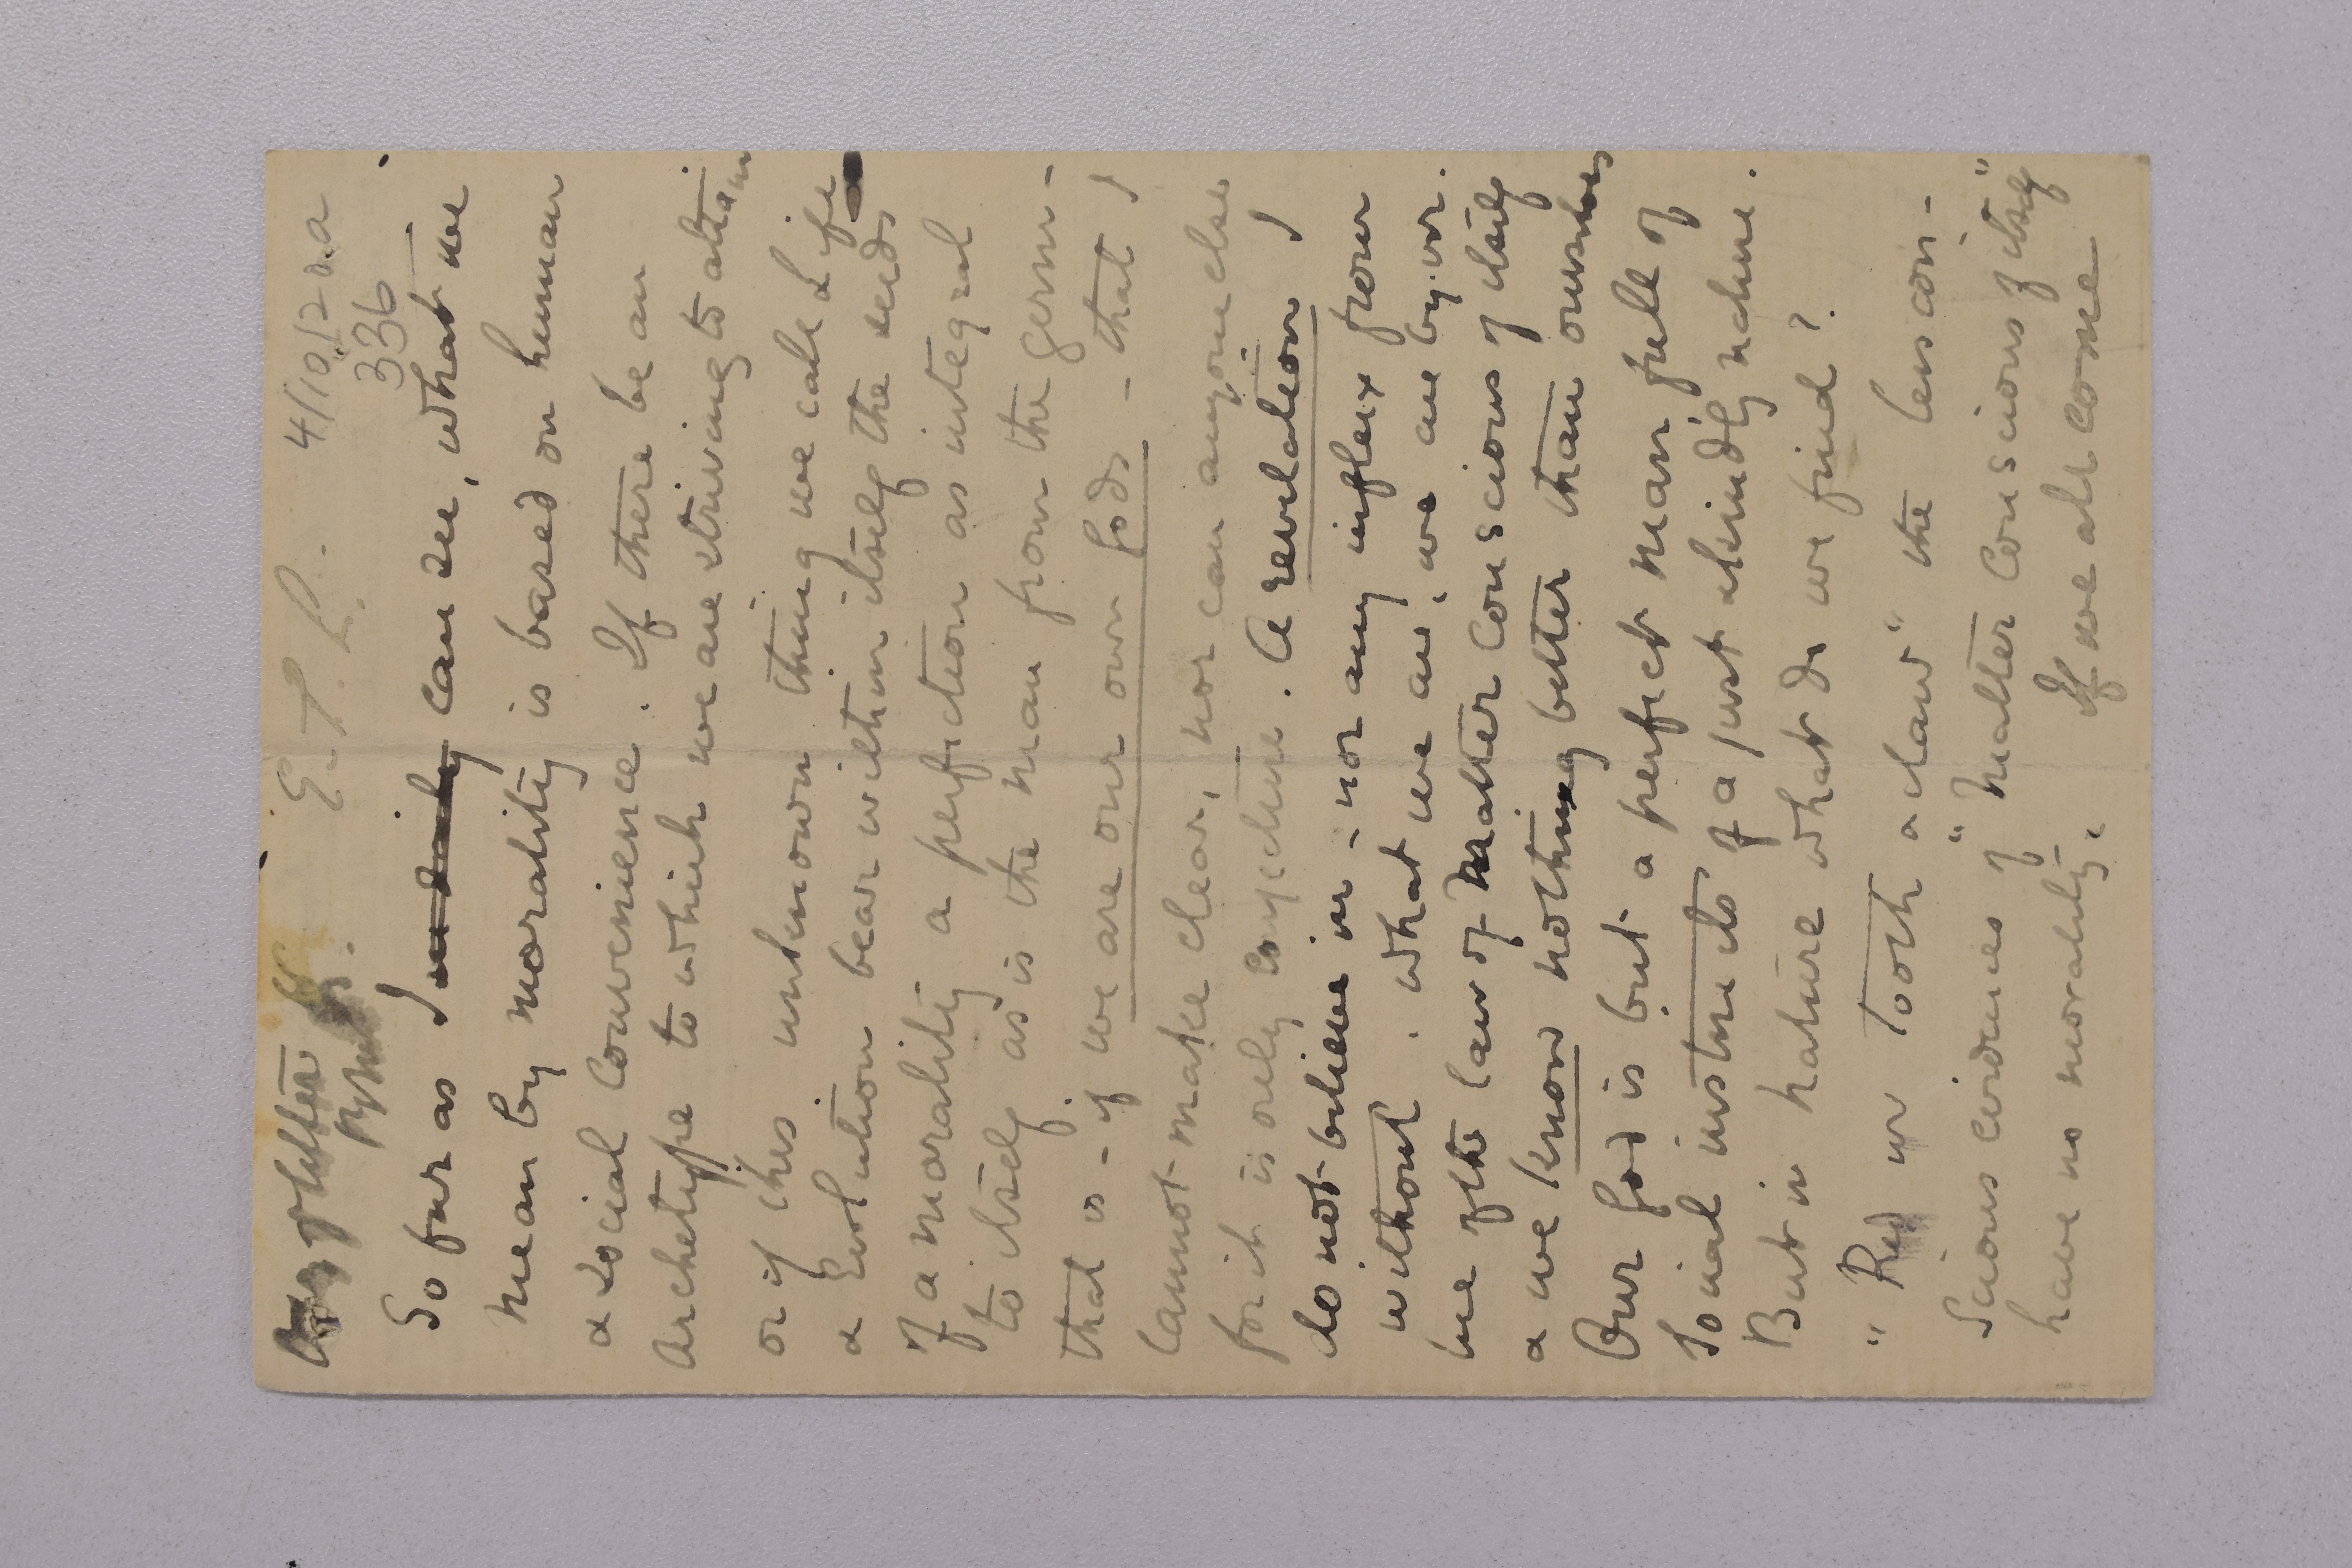 Copy of letter to E. T. R. 4/10/20.a
336
So far as I can see, what we
mean by morality is based on human
& social convenience. If there be an
Archetype to which we are striving to attain
or if this unknown thing we call Life
& Evolution bear within itself the seeds
of a morality a perfection as integral
to itself as is the man from the germ -
that is - if we are our own Gods - that I
cannot make clear, nor can anyone else
for it is only conjecture. A revelation I
do not believe in - nor any influx from
without. What we are, we are by vir.
tue of the law of Matter conscious of itself
& we know nothing better than ourselves
Our God is but a perfect man full of
social instincts & of a just & kindly nature.
But in nature what do we find?
"Red in tooth & claw" the less con-
scious evidences of "Matter conscious of itself"
have no morality. If we all come